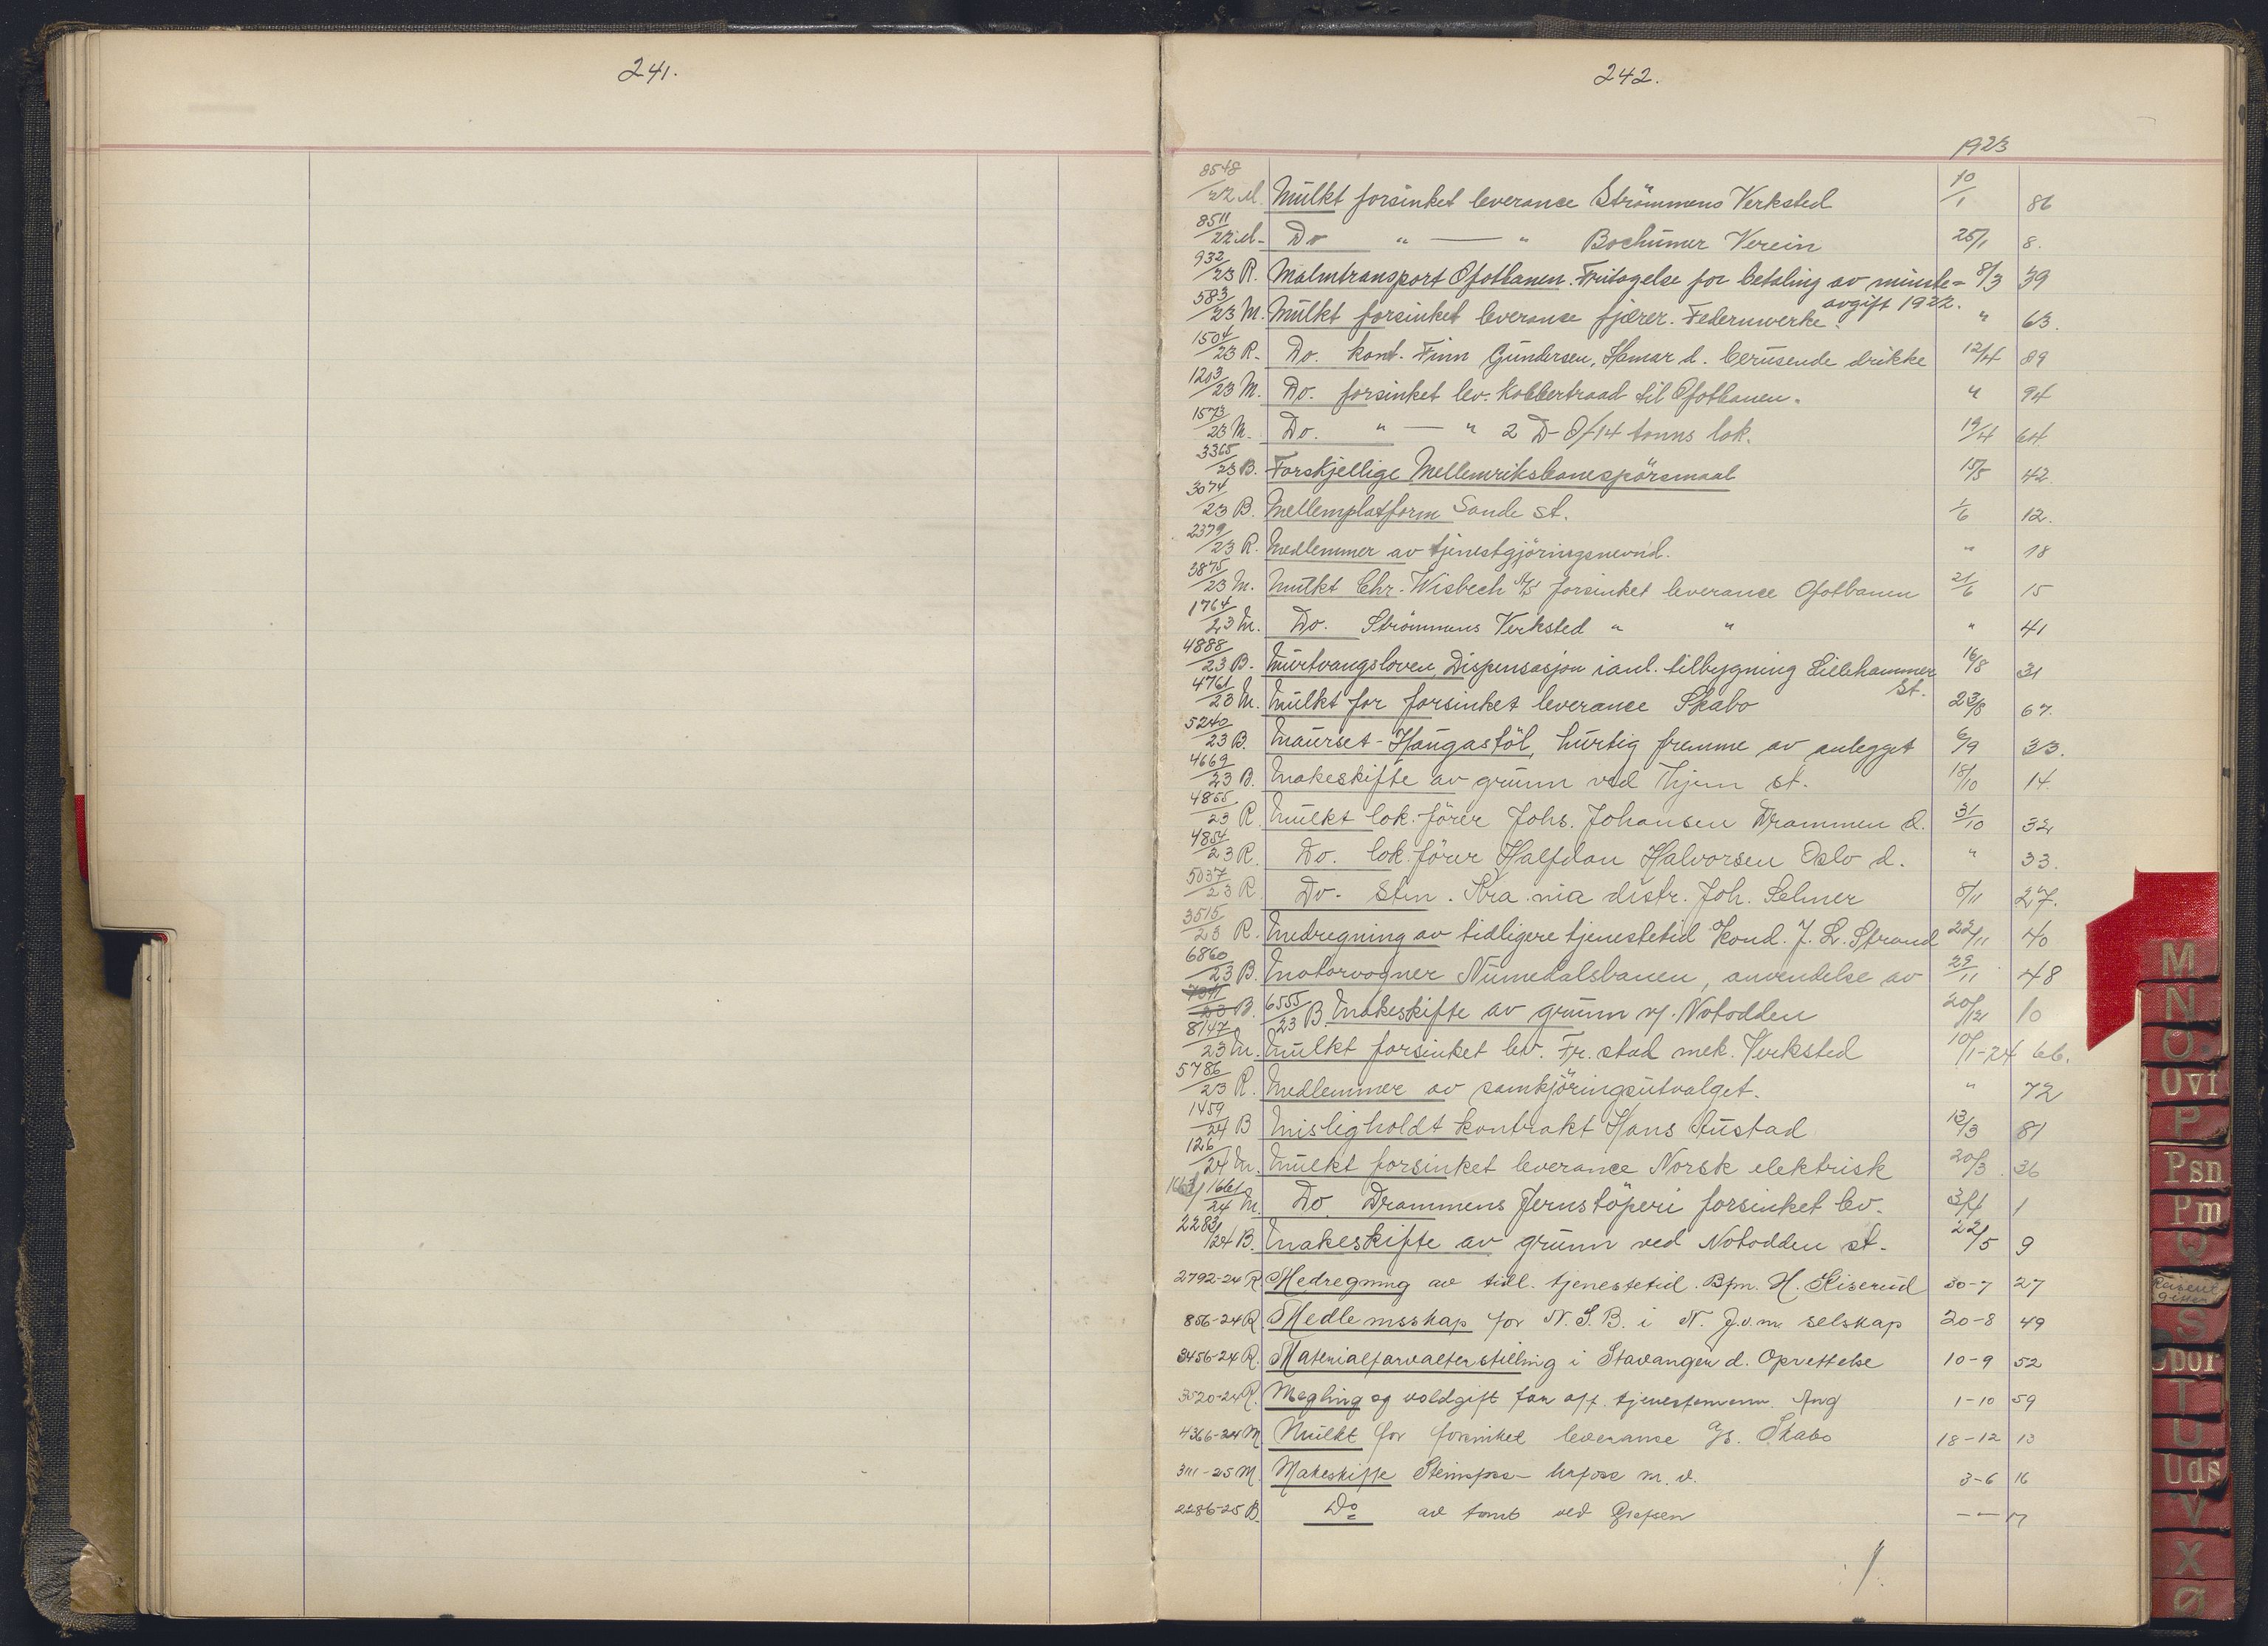 241.
242.
1923
8548/22 M. Mulkt forsinket leverance Strömmens Verksted 10/1 86
8511/22 M. Do " — " Bochumer Verein 25/1 8.
932/23 R. Malmtransport Ofotbanen. Fritagelse for betaling av minste- 8/3 39
avgift 1922.
583/23 M. Mulkt forsinket leverance fjærer. Federnwerke. " 63.
1504/23 R. Do. kond. Finn Gundersen, Hamar d. berusende drikke 12/4 89
1203/23 M. Do. forsinket lev. Kobbertraad til Ofotbanen. " 94
1573/23 M. Do. " — " 2 D-Of 14 tonns lok. 19/4 64
3365/23 B. Forskjellige Mellemriksbanespörsmaal 15/5 42
3074/23 B. Mellemplatform Sande st. 1/6 12.
2379/23 R. Medlemmer av tjenestgjöringsnevnd. " 18
3875/23 M. Mulkt Chr. Wisbech A/S forsinket leverance Ofotbanen 21/6 15
1764/23 M. Do. Strömmens Verksted " " " 41
4888/23 B. Murtvangsloven, Dispensasjon i anl. tilbygning Lillehammer 16/8 31
st.
4761/23 M. Mulkt for forsinket leverance Skabo 23/8 67.
5240/23 B. Maurset-Haugastöl, hurtig fremme av anlegget 6/9 33.
4669/23 B. Makeskifte av grunn ved Hjem st. 18/10 14
4855/23 R. Mulkt lok. förer Johs. Johansen Drammen d. 31/10 32
4854/23 R. Do. lok. förer Halfdan Halvorsen Oslo d. " 33.
5037/23 R Do. Stm. Kra.nia distr. Joh. Selmer 8/11 27.
3515/23 R. Medregning av tidligere tjenestetid Kond. J. L. Strand 22/11 40
6860/23 B. Motorvogner Numedalsbanen, anvendelse av 29/11 48
7041/23 B. 6555/23 B. Makeskifte av grunn v/ Notodden 20/12 10
8147/23 M. Mulkt forsinket lev. Fr.stad mek. Verksted 10/1-24 66.
5786/23 R. Medlemmer av samkjöringsutvalget. " 72
1459/24 B Misligholdt kontrakt Hans Austad 13/3 81
126/24 M. Mulkt forsinket leverance Norsk elektrisk 20/3 36
1661/24 M. Do. Drammens Jernstöperi forsinket lev. 3/4 1
2283/24 B. Makeskifte av grunn ved Notodden st. 22/5 9
2792-24 R Medregning av tidl. tjenestetid. Bfm. H. Kiserud 30-7 27
856-24 R. Medlemsskap for N.S.B. i N. J.v.m selskap 20-8 49
3456-24 R. Materialforvalterstilling i Stavanger d. Oprettelse 10-9 52
3520-24 R. Megling og voldgift for off. tjenestemenn. Ang 1-10 59
4366-24 M Mulkt for forsinket leverance A/S. Skabo 18-12 13
311-25 M. Makeskifte m. v. 3-6 16
2286-25 B. Do av tomt ved Grefsen — — 17
M
N
O
Ovf
P
Psn
Pm
Q
S
Spor
T
U
Uds
V
X
Ø